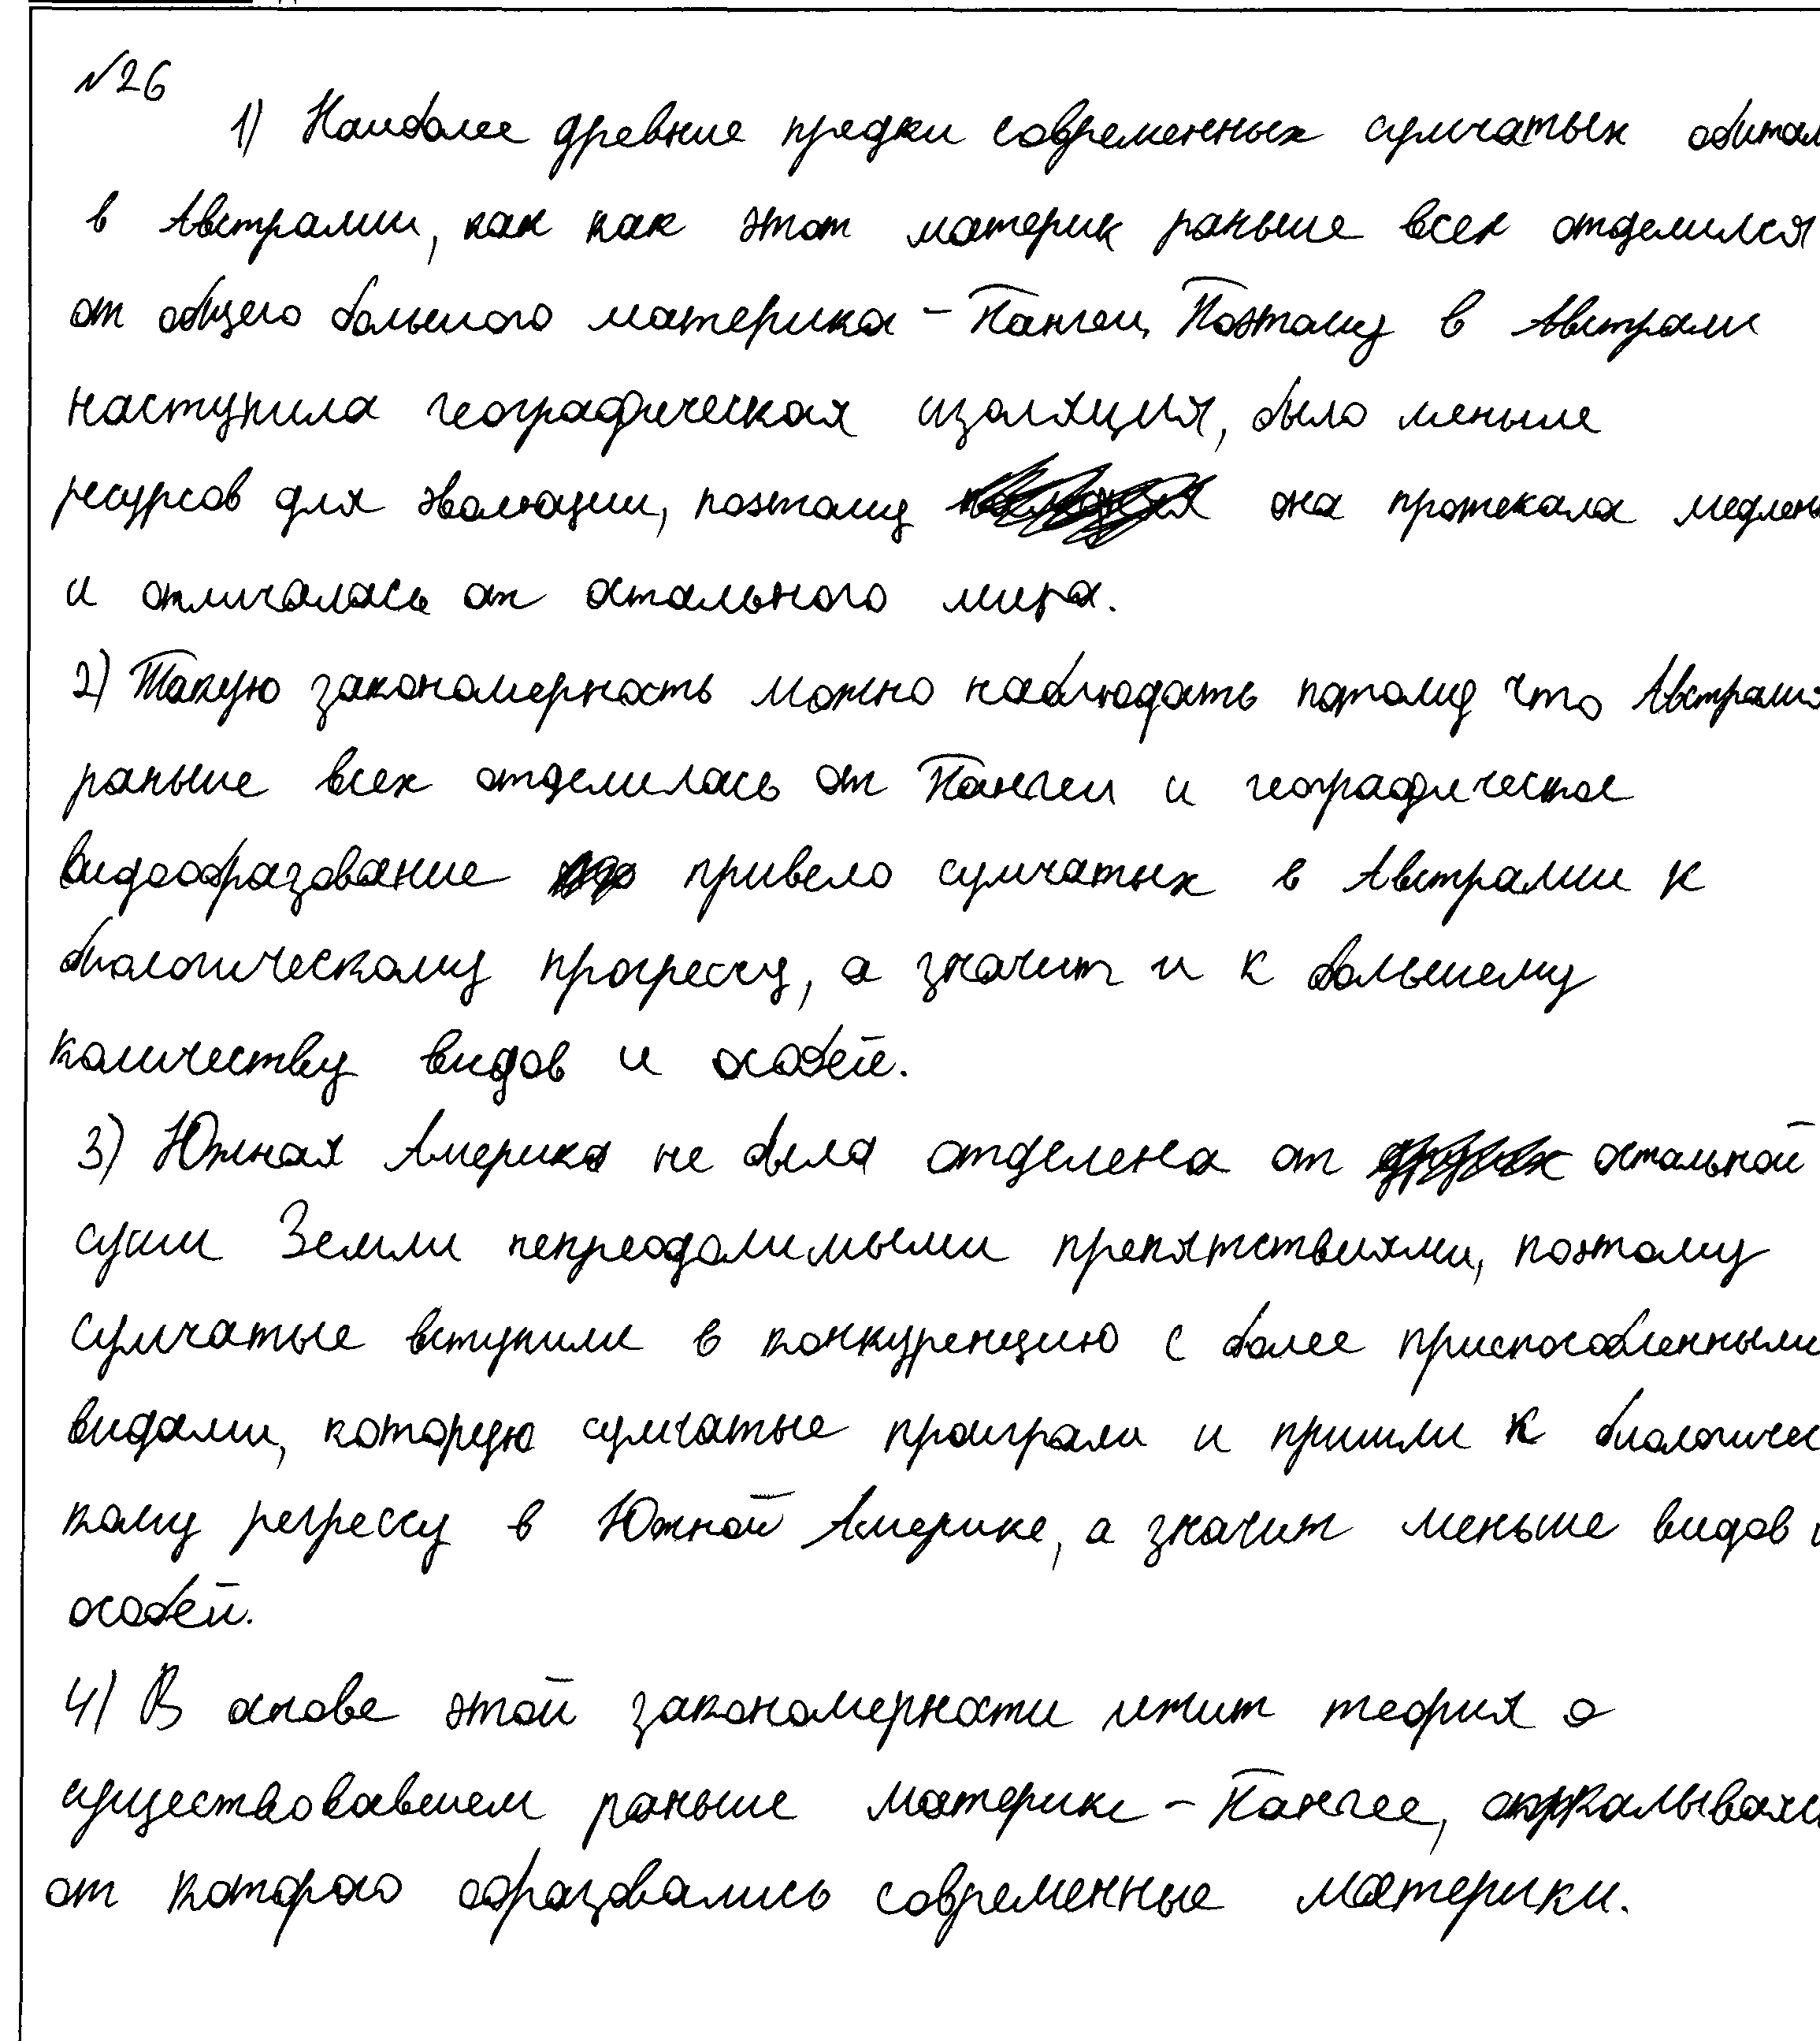 №26
1) Наиболее древние предки современных сумчатых обитал
в Австралии, как как этот материк раньше всех отделился
от общего большого материка – Пангеи. Поэтому в Австрали
наступила географическая изоляция, было меньше
ресурсов для эволюции, поэтому она протекала медлен
и отличалась от остального мира.
2) Такую закономерность можно наблюдать потому что Австралия
раньше всех отделилась от Пангеи и географическое
видообразование привело сумчатых в Австралии к
биологическому прогрессу, а значит и к большему
количеству видов и особей.
3) Южная Америка не была отделена от остальной
суши Земли непреодолимыми препятствиями, поэтому
сумчатые вступили в конкуренцию с более приспособленными
видами, которую сумчатые проиграли и пришли к биологичес
кому регрессу в Южной Америке, а значит меньше видов и
особей.
4) В основе этой закономерности лежит теория о
существовавшем раньше материке – Пангее,
от которого образовались современные материки.